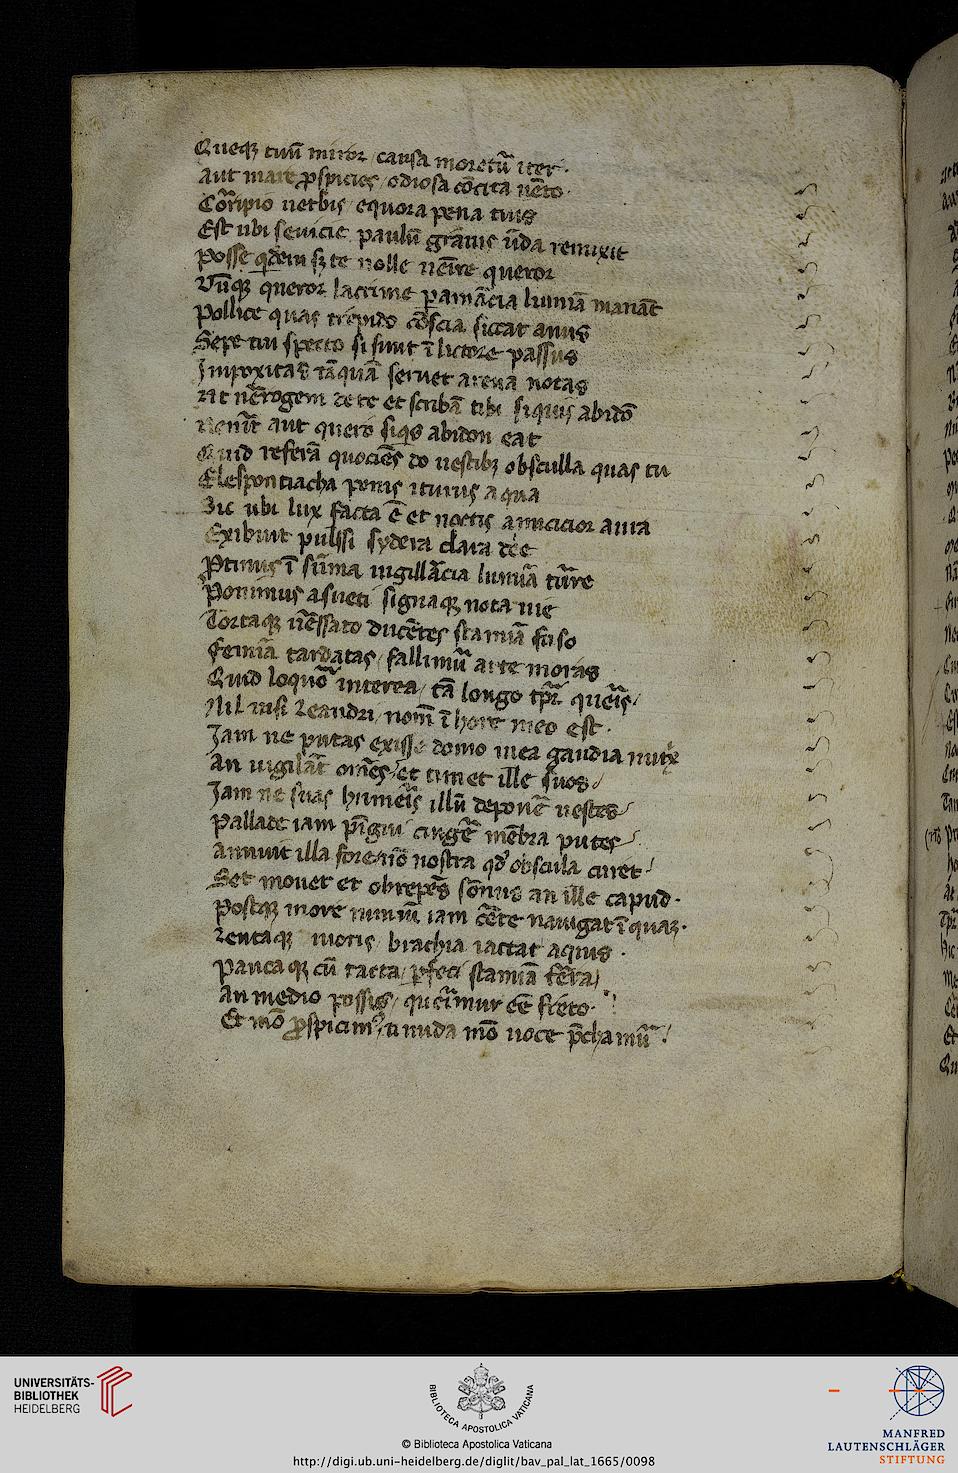 Queqꝫ tuū miror / causa moretũ iter.
aut mare ꝓspicies / odiosa cōcita uēto.
Corripio uerbis / equora pena tuis
Est ubi seuicie paulū grauis ūda remixit
posse qͥdem sꝫ te nolle uēire queror
Dūqꝫ queror lacrime p amācia lumīa manāt
pollice quas trepido cōscia siccat anus
Sepe tui specto si sunt ī lictore passus
Impoxitas tāquā seruet arena notas
ut rogem de te et scribā tibi siquis abidō
uenīt aut quero siqͥs abidon eat
Quid referā quociēs do uestibꝫ obsculla quas tu
Elespontiacha ponis iturus aqua
Sic ubi lux facta ē et noctis amicicior aura
Exibuit pulssi sydera clara dēe
Ptinus ī sūma uigillācia lumīa
ponimus asueti signaqꝫ nota
Tortaqꝫ uēssato ducētes stamīa fuso
Feminīa tardatas / fallimū arte moras
Quid loquōr interea / tā longo tꝑr queris
Nil nisi Leandri / nomē ī hore meo est.
Jam ne putas exisse domo mea gaudia nutx
an uigilāt omēs / et timet ille suos
Jam ne suas humeīs illū deponē uestes
pallade iam pīgui cīgē mēbra putes
annuit illa fore / nō nostra qd obscula curet
Set mouet et obrepēs sōnus an ille capud.
postqꝫ more nimiū iam cēte nauigat īquaꝫ.
Lentaqꝫ moris / brachia iactat aqius.
paucaqꝫ cū tacta / ꝑfeci stamīa tēra
an medio possis / querimur cē freto.
Et mō ꝓspicimꝰ, timida mō uoce p̄chamū
UNIVERSITÄTS-
BIBLIOTHEK
HEIDELBERG
BIBLIOTECA APOSTOLICA VATICANA
© Biblioteca Apostolica Vaticana
http://digi.ub.uni-heidelberg.de/diglit/bav_pal_lat_1665/0098
MANFRED
LAUTENSCHLÄGER
STIFTUNG